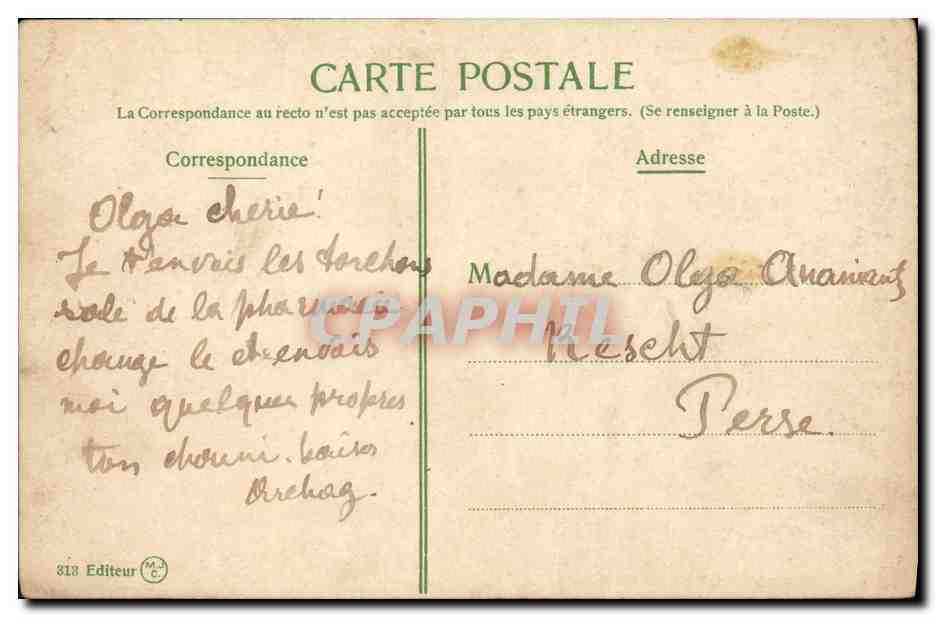 CARTE POSTALE
La Correspondance au recto n'est pas acceptée par tous les pays étrangers. (Se renseigner à la Poste.)
Correspondance
Olga cherie!
Je t'envois les torchons
sale de la pharmacie
change le et envois
moi quelques propres
ton chouni. baisos
Archag.
313 Editeur M.J.C.
Adresse
Madame Olga Ananiantz
Rescht
Perse.
CPAPHIL